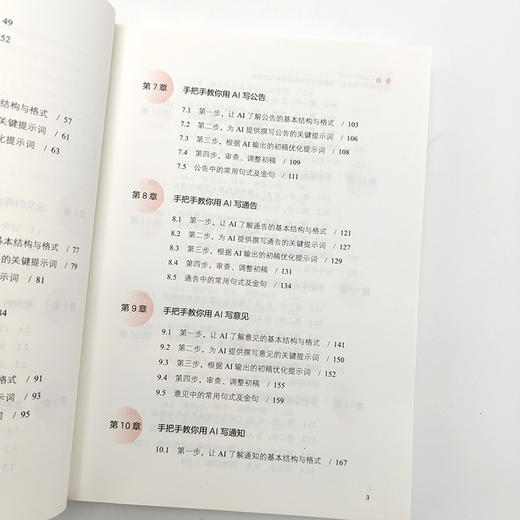 49
52
结构与格式 / 57
键提示词 / 61
化提示词 / 63
基本结构与格式 / 77
的关键提示词 / 79
提示词 / 81
84
格式 / 91
示词 / 93
词 / 95
目录
第 7 章 手把手教你用 AI 写公告
7.1 第一步，让 AI 了解公告的基本结构与格式 / 103
7.2 第二步，为 AI 提供撰写公告的关键提示词 / 106
7.3 第三步，根据 AI 输出的初稿优化提示词 / 108
7.4 第四步，审查、调整初稿 / 109
7.5 公告中的常用句式及金句 / 111
第 8 章 手把手教你用 AI 写通告
8.1 第一步，让 AI 了解通告的基本结构与格式 / 121
8.2 第二步，为 AI 提供撰写通告的关键提示词 / 127
8.3 第三步，根据 AI 输出的初稿优化提示词 / 129
8.4 第四步，审查、调整初稿 / 131
8.5 通告中的常用句式及金句 / 134
第 9 章 手把手教你用 AI 写意见
9.1 第一步，让 AI 了解意见的基本结构与格式 / 141
9.2 第二步，为 AI 提供撰写意见的关键提示词 / 150
9.3 第三步，根据 AI 输出的初稿优化提示词 / 152
9.4 第四步，审查、调整初稿 / 155
9.5 意见中的常用句式及金句 / 159
第 10 章 手把手教你用 AI 写通知
10.1 第一步，让 AI 了解通知的基本结构与格式 / 167
3